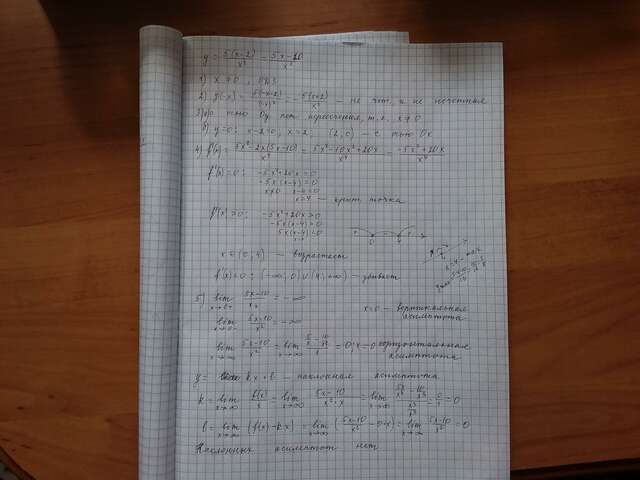 y = 5(x-2)/x² = 5x-10/x²
1) x ≠ 0, ОДЗ
2) y(-x) = 5(-x-2)/(-x)² = -5(x+2)/x² - не чет. и не нечетная
3) а) с осью Oy нет пересечения, т.к. x ≠ 0
б) y=0; x-2=0; x=2; (2;0) - с осью Ox
4) f'(x) = 5x²-2x(5x-10)/x⁴ = 5x²-10x²+20x/x⁴ = -5x²+20x/x⁴
f'(x)=0: -5x²+20x=0
-5x(x-4)=0
x≠0 x-4=0
x=4 - крит. точка
f'(x)>0: -5x²+20x>0
-5x(x-4)>0
5x(x-4)<0
0 4 x
x ∈ (0; 4) - возрастает
f'(x)<0: (-∞; 0) ∪ (4; +∞) - убывает
5) lim x→0+ 5x-10/x² = -∞
x=0 - вертикальная асимптота
lim x→0- 5x-10/x² = -∞
lim x→∞ 5x-10/x² = lim x→∞ = 0; горизонтальная асимптота
y = kx+b - наклонная асимптота
k = lim x→∞ f(x)/x = lim x→∞ 5x-10/x²·x = lim x→∞ = 0
b = lim x→∞ (f(x)-kx) = lim x→∞ (5x-10/x² - 0·x) = lim x→∞ 5x-10/x² = 0
Наклонных асимптот нет